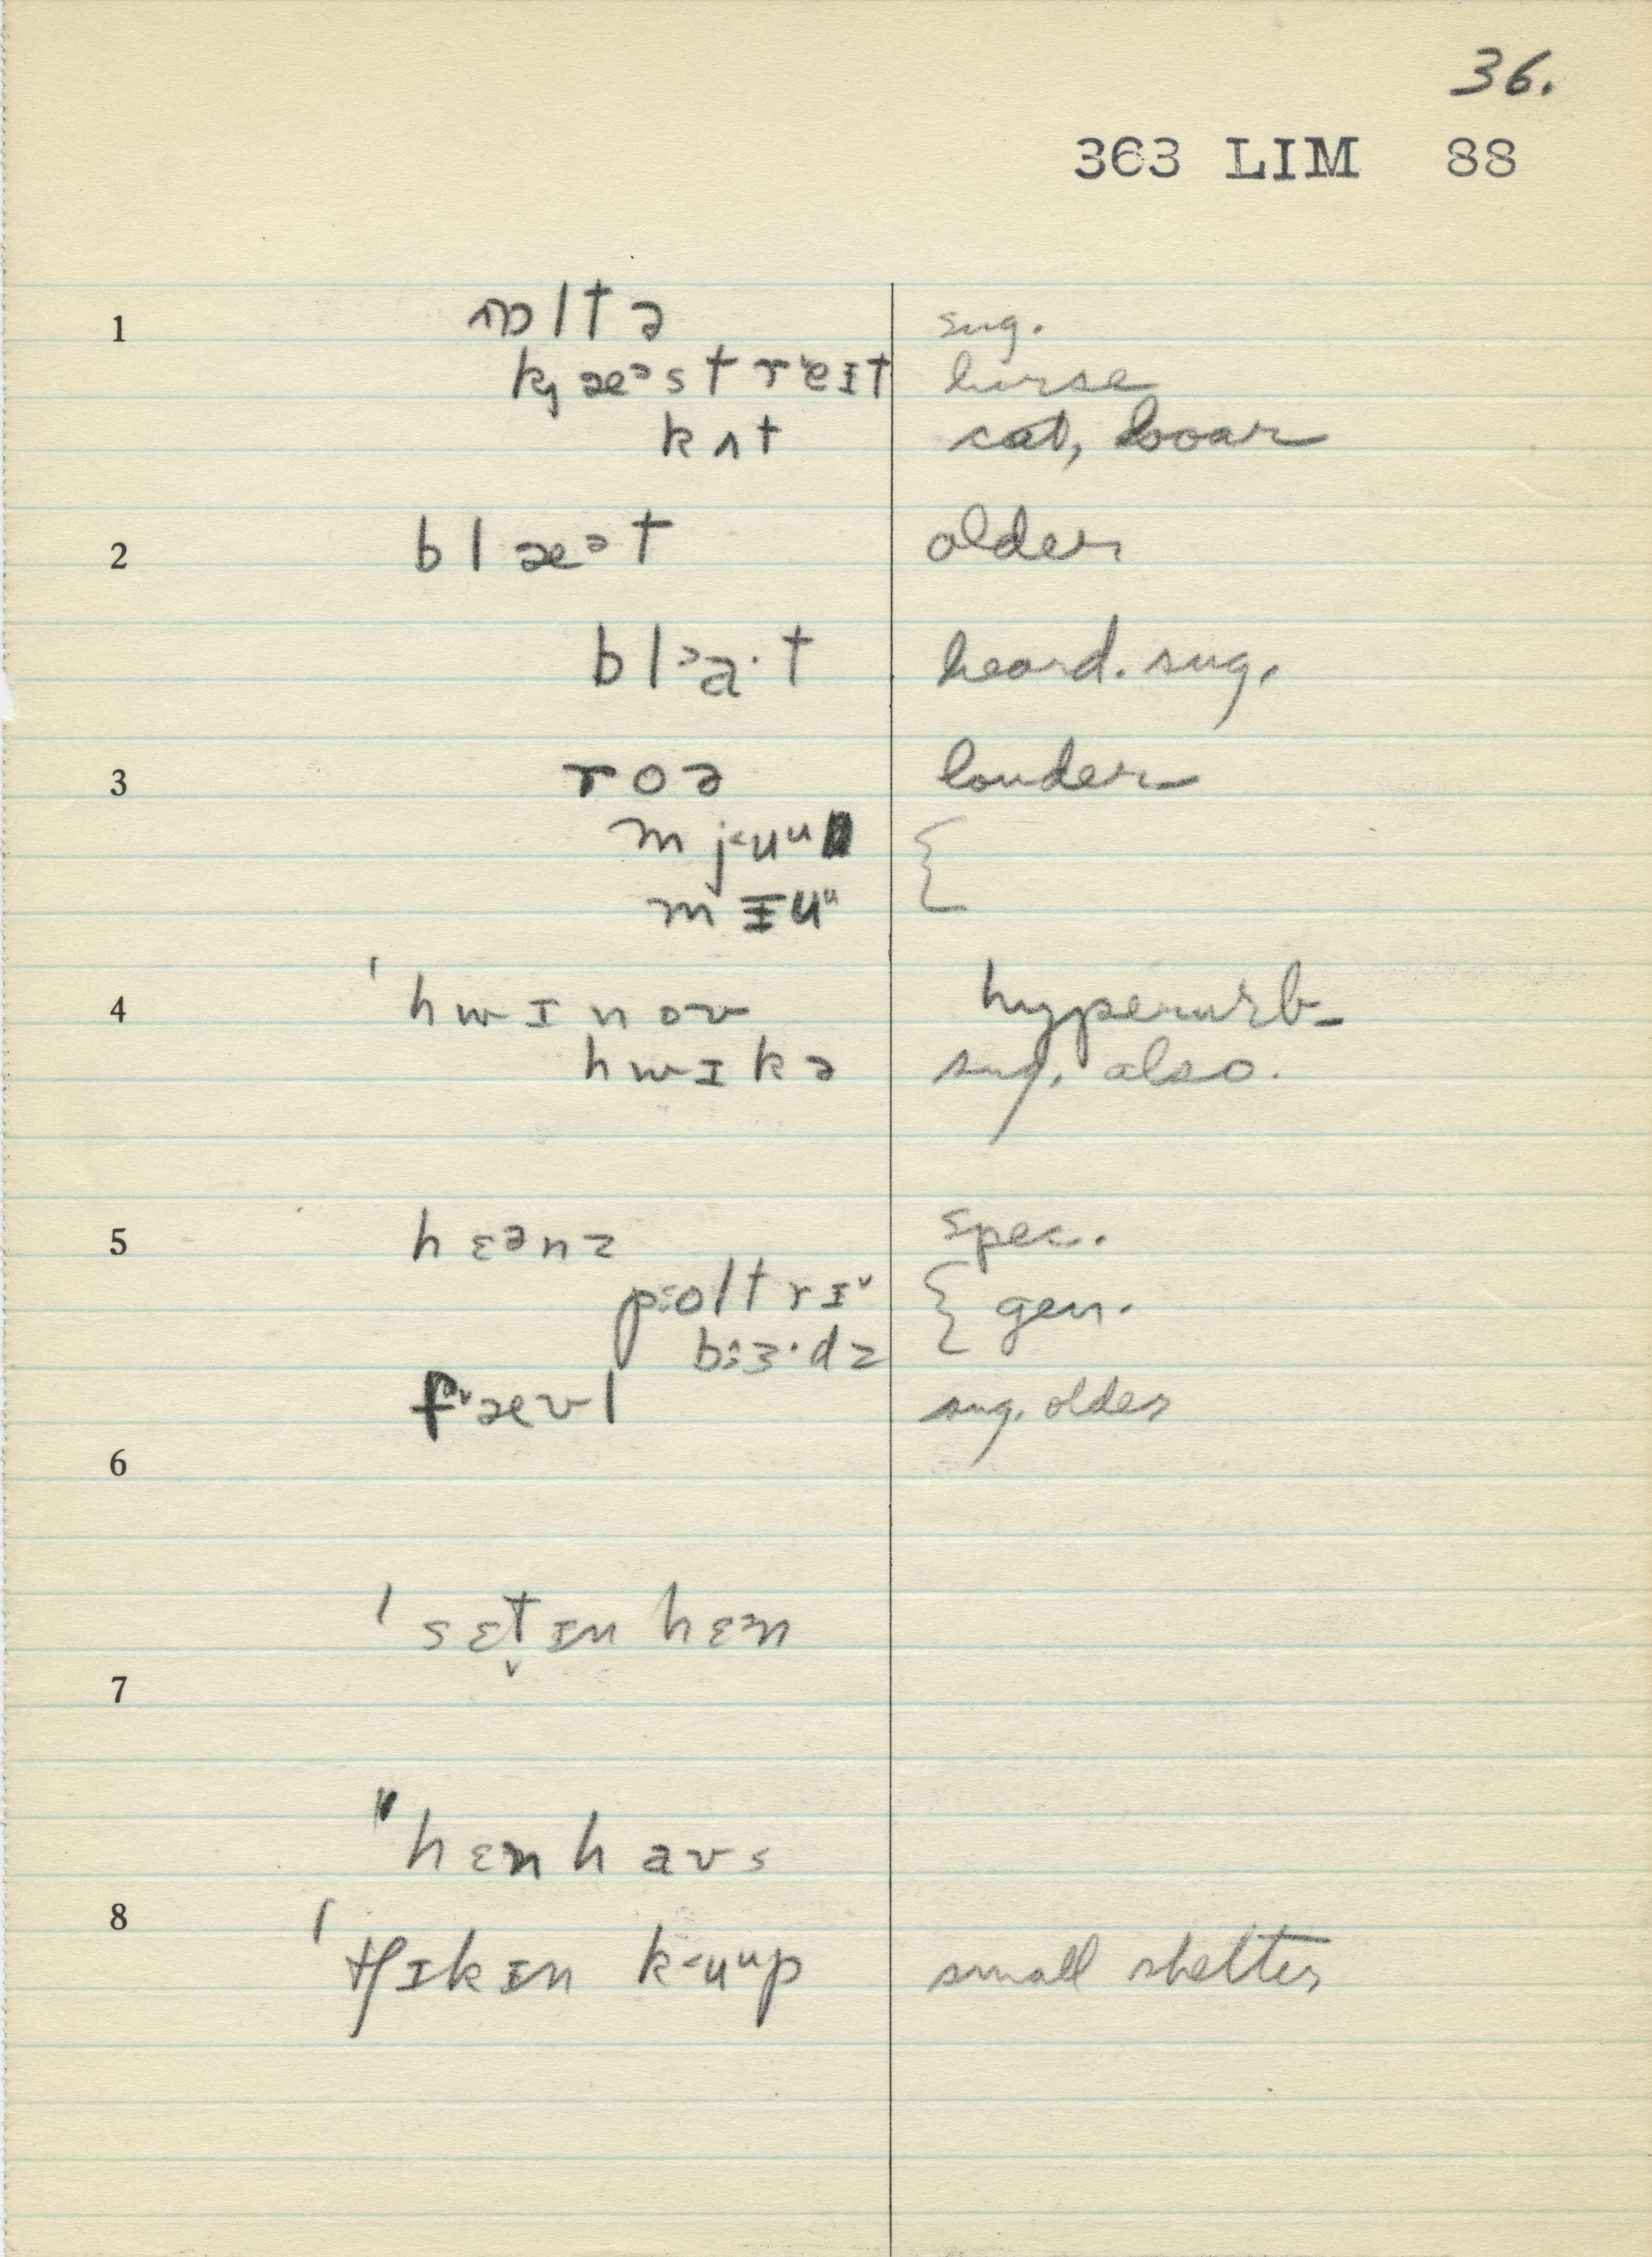 36.
363 LIM 88
1 ɒltə sug.
kj æᵊstrˈeɪt horse
kʌt cat, boar
2 blæᵊt older
bl˃a·t heard. sug.
3 roə louder
m j˂uᵘ {
m ɪuᵘ
4 ˈhwɪnoʊ hyperurb–
hwɪkə sug. also.
5 hɛᵊnz spec.
poltrɪˇ { gen.
bɜ·dz
fˇæʊl sug. older
6
ˈsɛt̬ɪn hɛᵊn
7
"hɛnhaʊs
8 ˈtʃɪkɪn k˂uᵘp small shelter